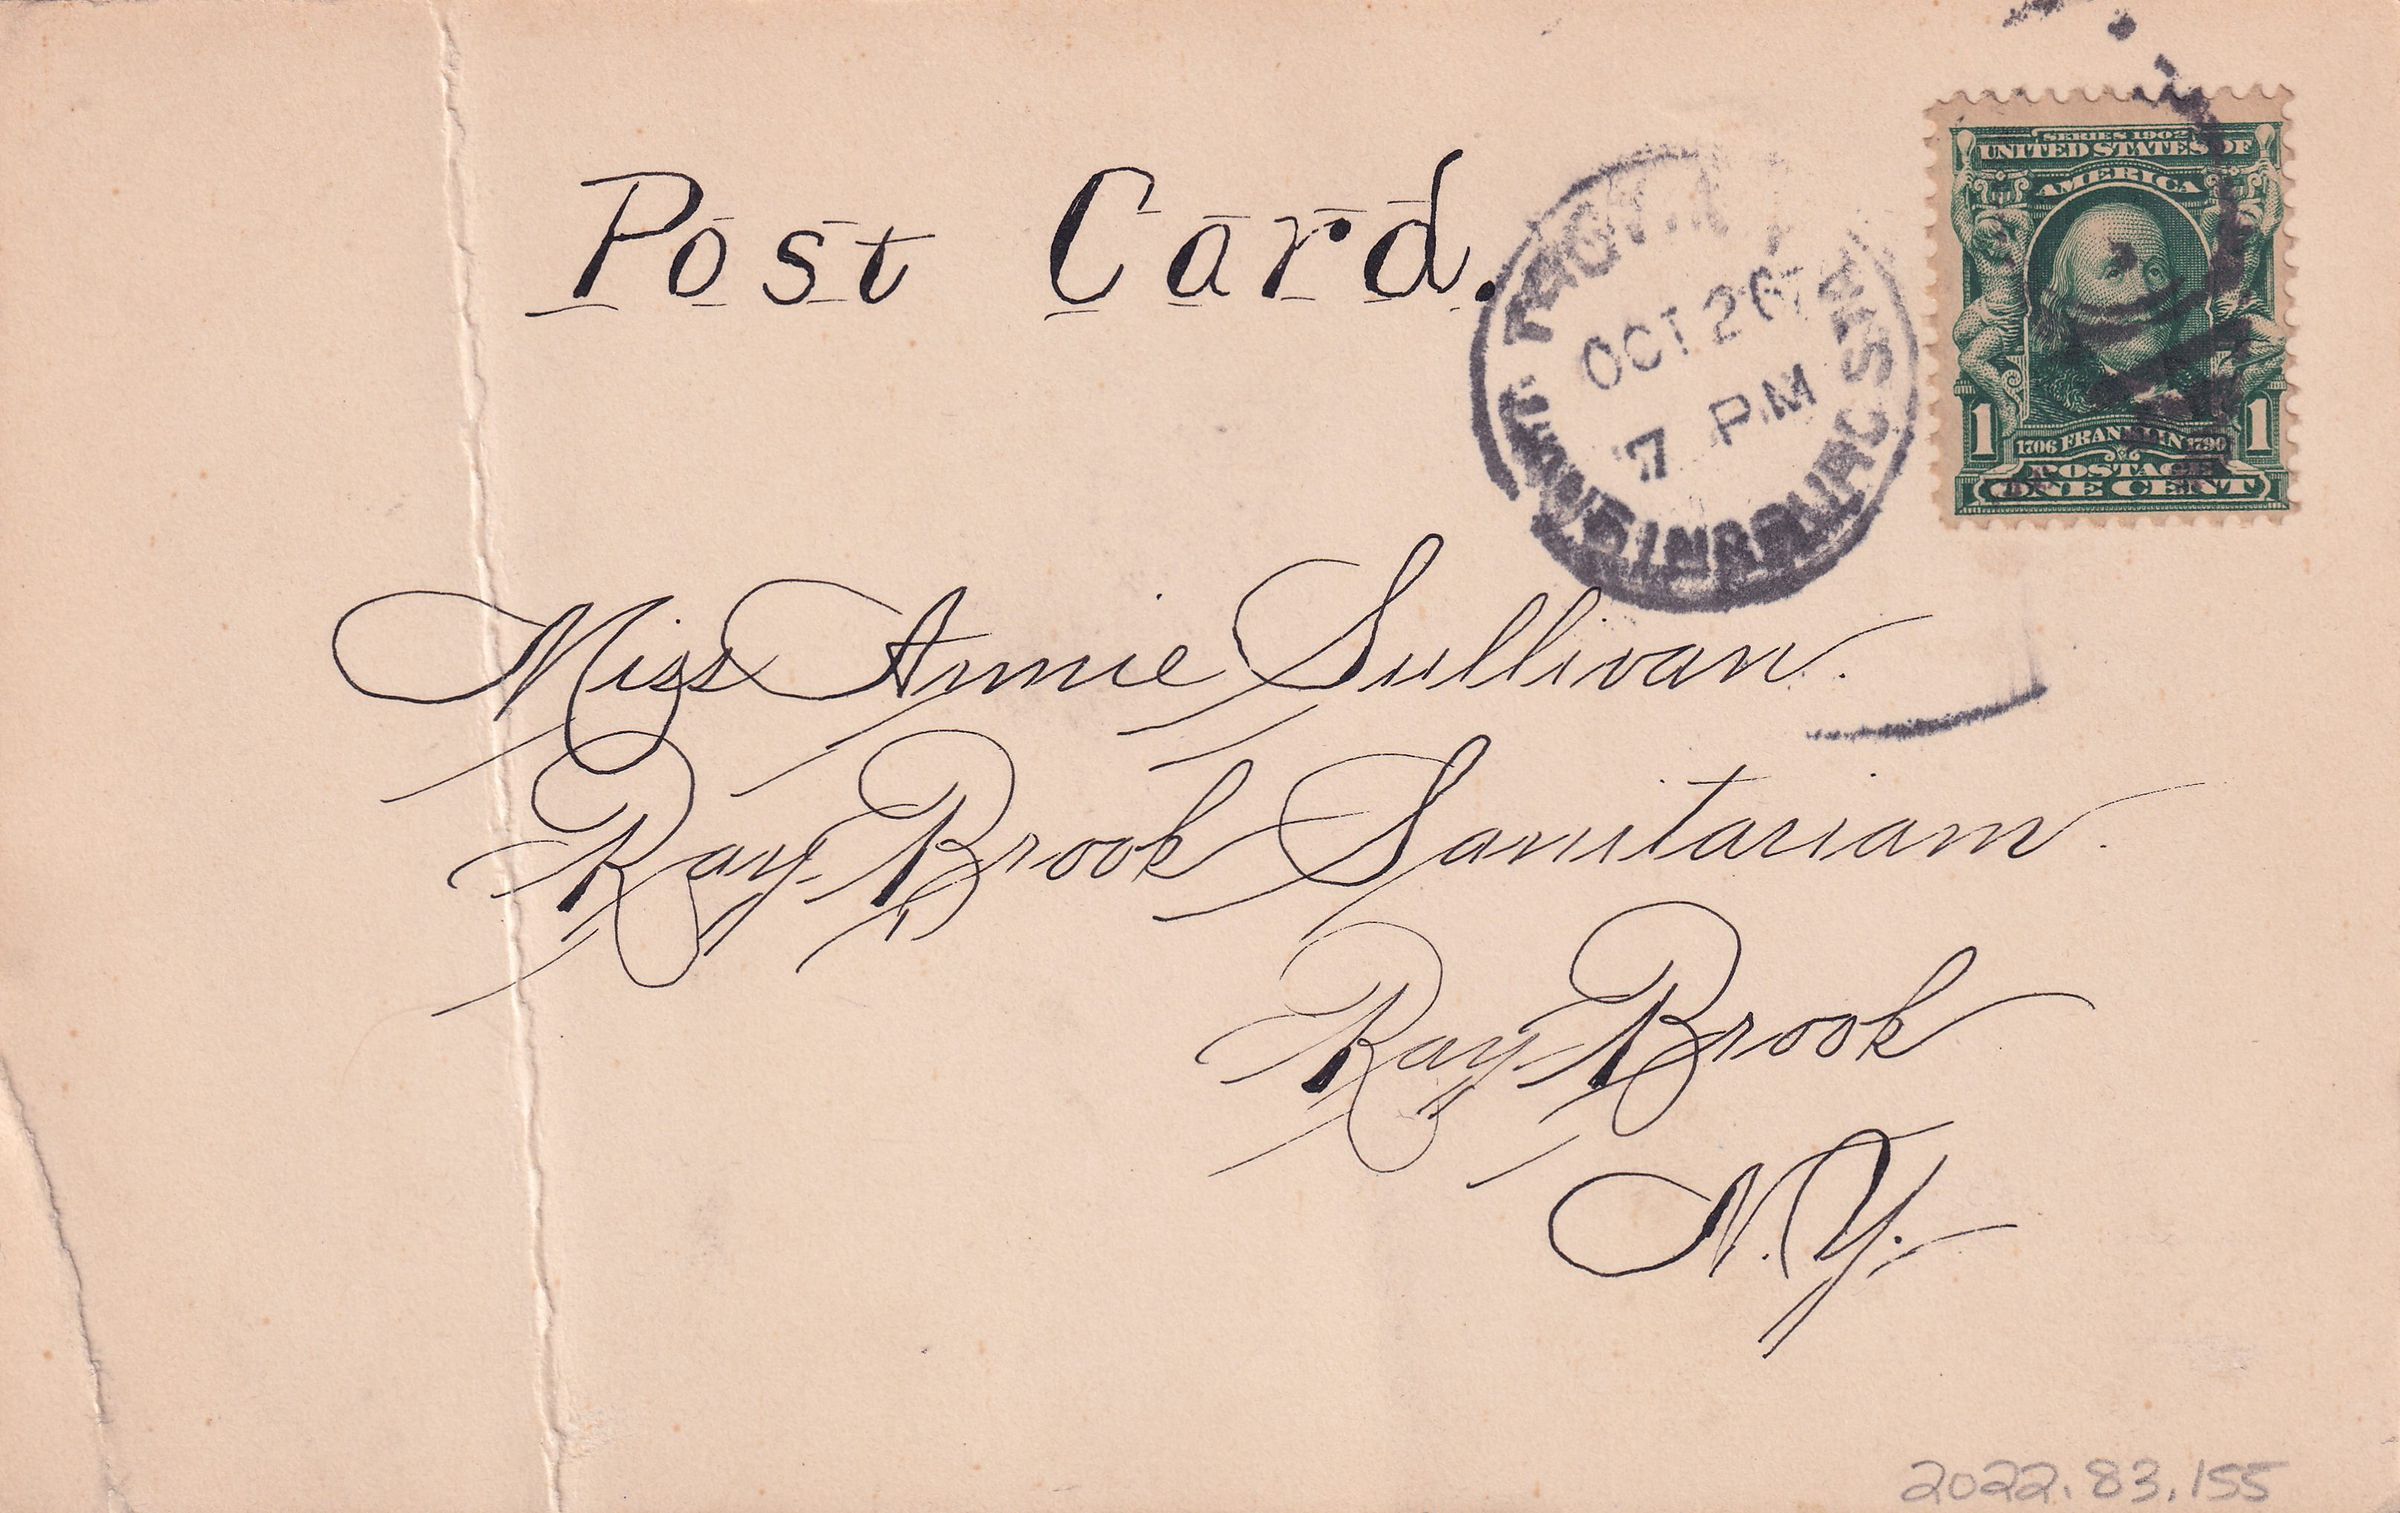 Post Card.
OCT 26
7 PM
SERIES 1902
UNITED STATES OF
AMERICA
1 1706 FRANKLIN 1790 1
POSTAGE
ONE CENT
Miss Annie Sullivan.
Ray-Brook Sanitariam.
Ray-Brook
N.Y.
2022.83.155